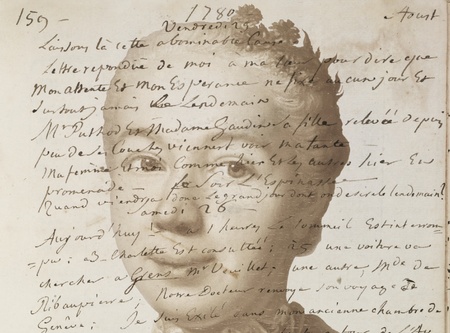 159 - 1780 Aoust
Vendredi 25
Laissons là cette abominable
Lettre repondüe de moi a ma pour dire que
Mon attente et Mon Esperance ne aucune jour Et
Surtout jamais Le Lendemain
Mr Puthod Et Madame Gaudin Sa fille relevée depuis
peu de Couches viennent voir ma tante
Ma femme Et moi Comme hier Et les autres hier En
promenade — Le Soir L'Espinasse
Quand viendra donc Le grand jour dont on desire le lendemain?
Samedi 26 -
Aujourd'huy a 1 heure, Le Sommeil Est interrom-
pu: a 3 Charlotte Est consultée; 25 une voiture va
chercher a Grens Mr Veuillet une autre, Mde de
Ribaupierre; Notre Docteur renvoye son voyage de
Genève; Je suis Exilé dans mon ancienne chambre de